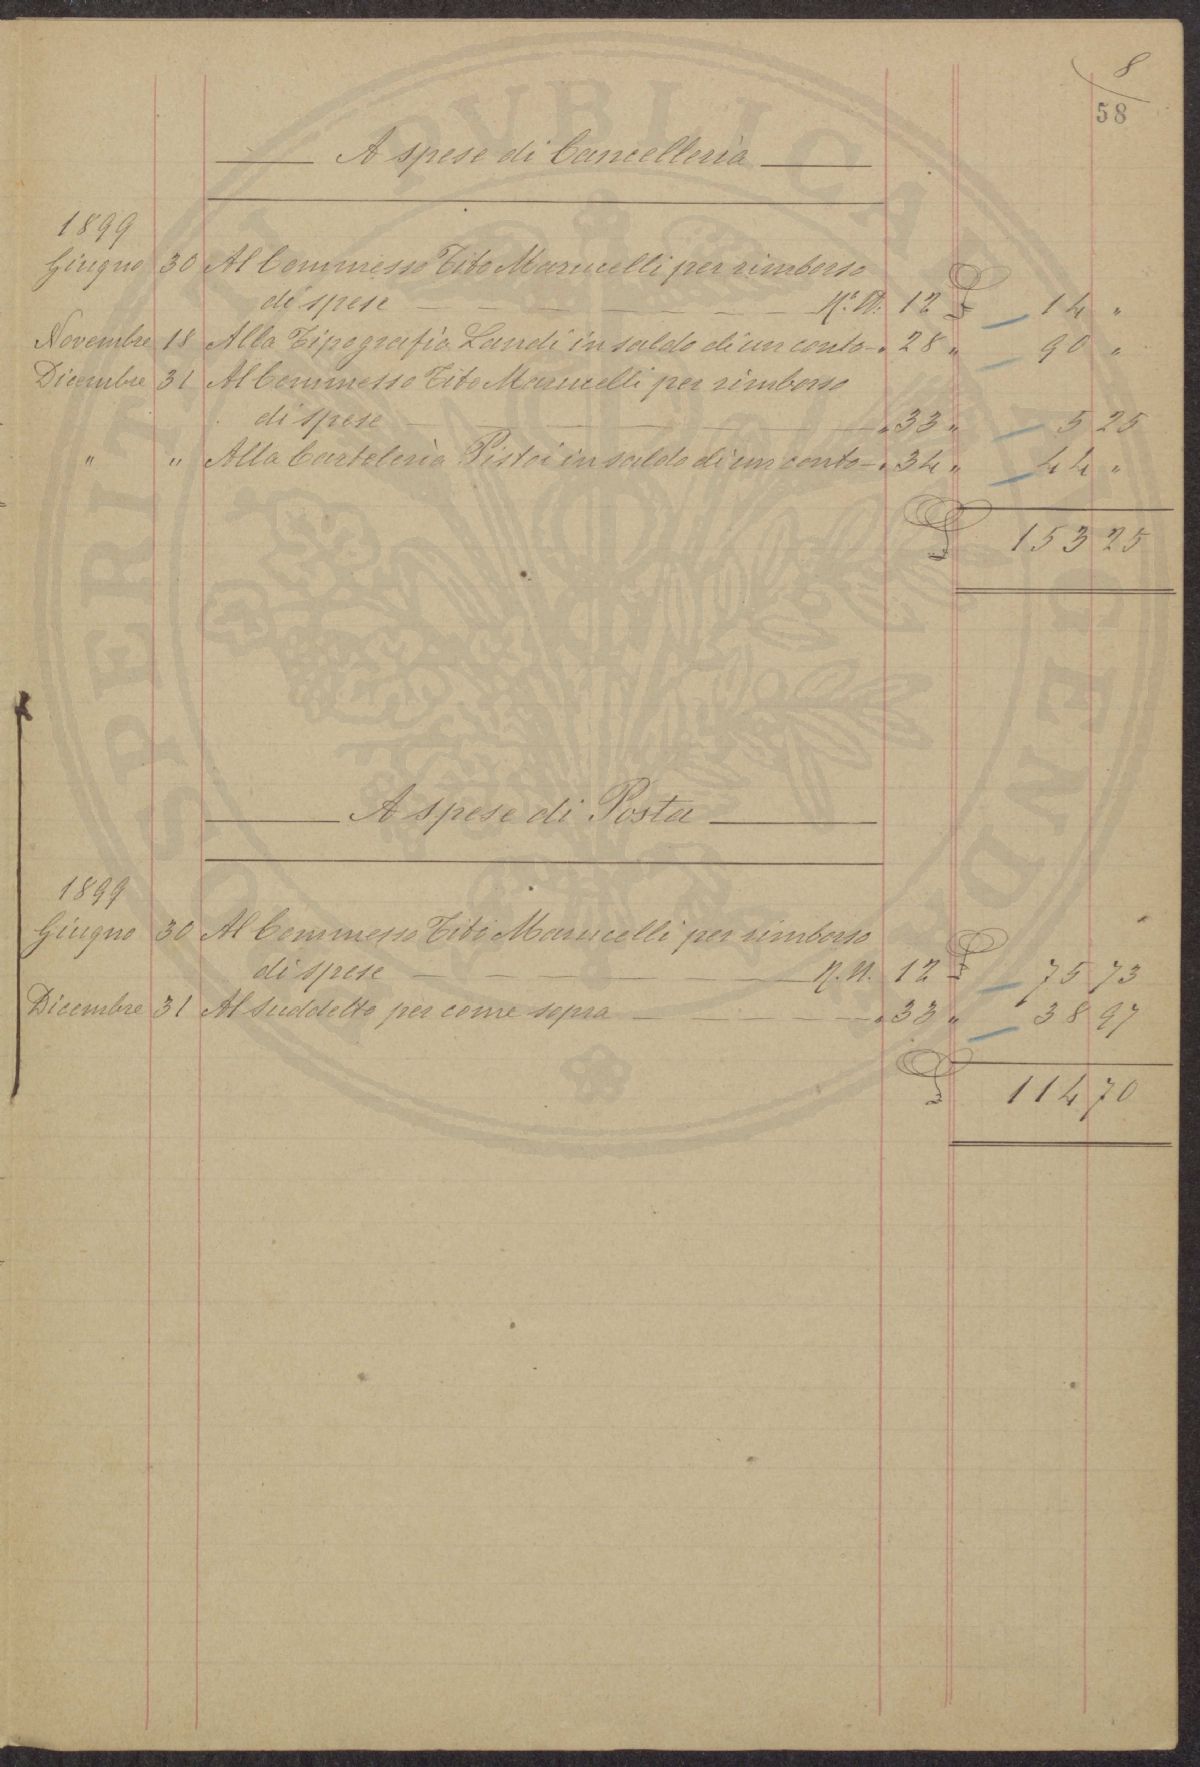 8
58
A spese di Cancelleria
1899
Giugno 30 Al Commesso Tito Marucelli per rimborso
di spese N.° M. 12 £ 14 "
Novembre 18 Alla Tipografia Landi in saldo di un conto " 28 " 90 "
Dicembre 31 Al Commesso Tito Marucelli per rimborso
di spese " 33 " 5 25
" " Alla Cartoleria Pistoi in saldo di un conto " 34 " 44 "
£ 153 25
A spese di Posta
1899
Giugno 30 Al Commesso Tito Marucelli per rimborso
di spese N. M. 12 £ 75 73
Dicembre 31 Al suddetto per come sopra " 33 " 38 97
£ 114 70